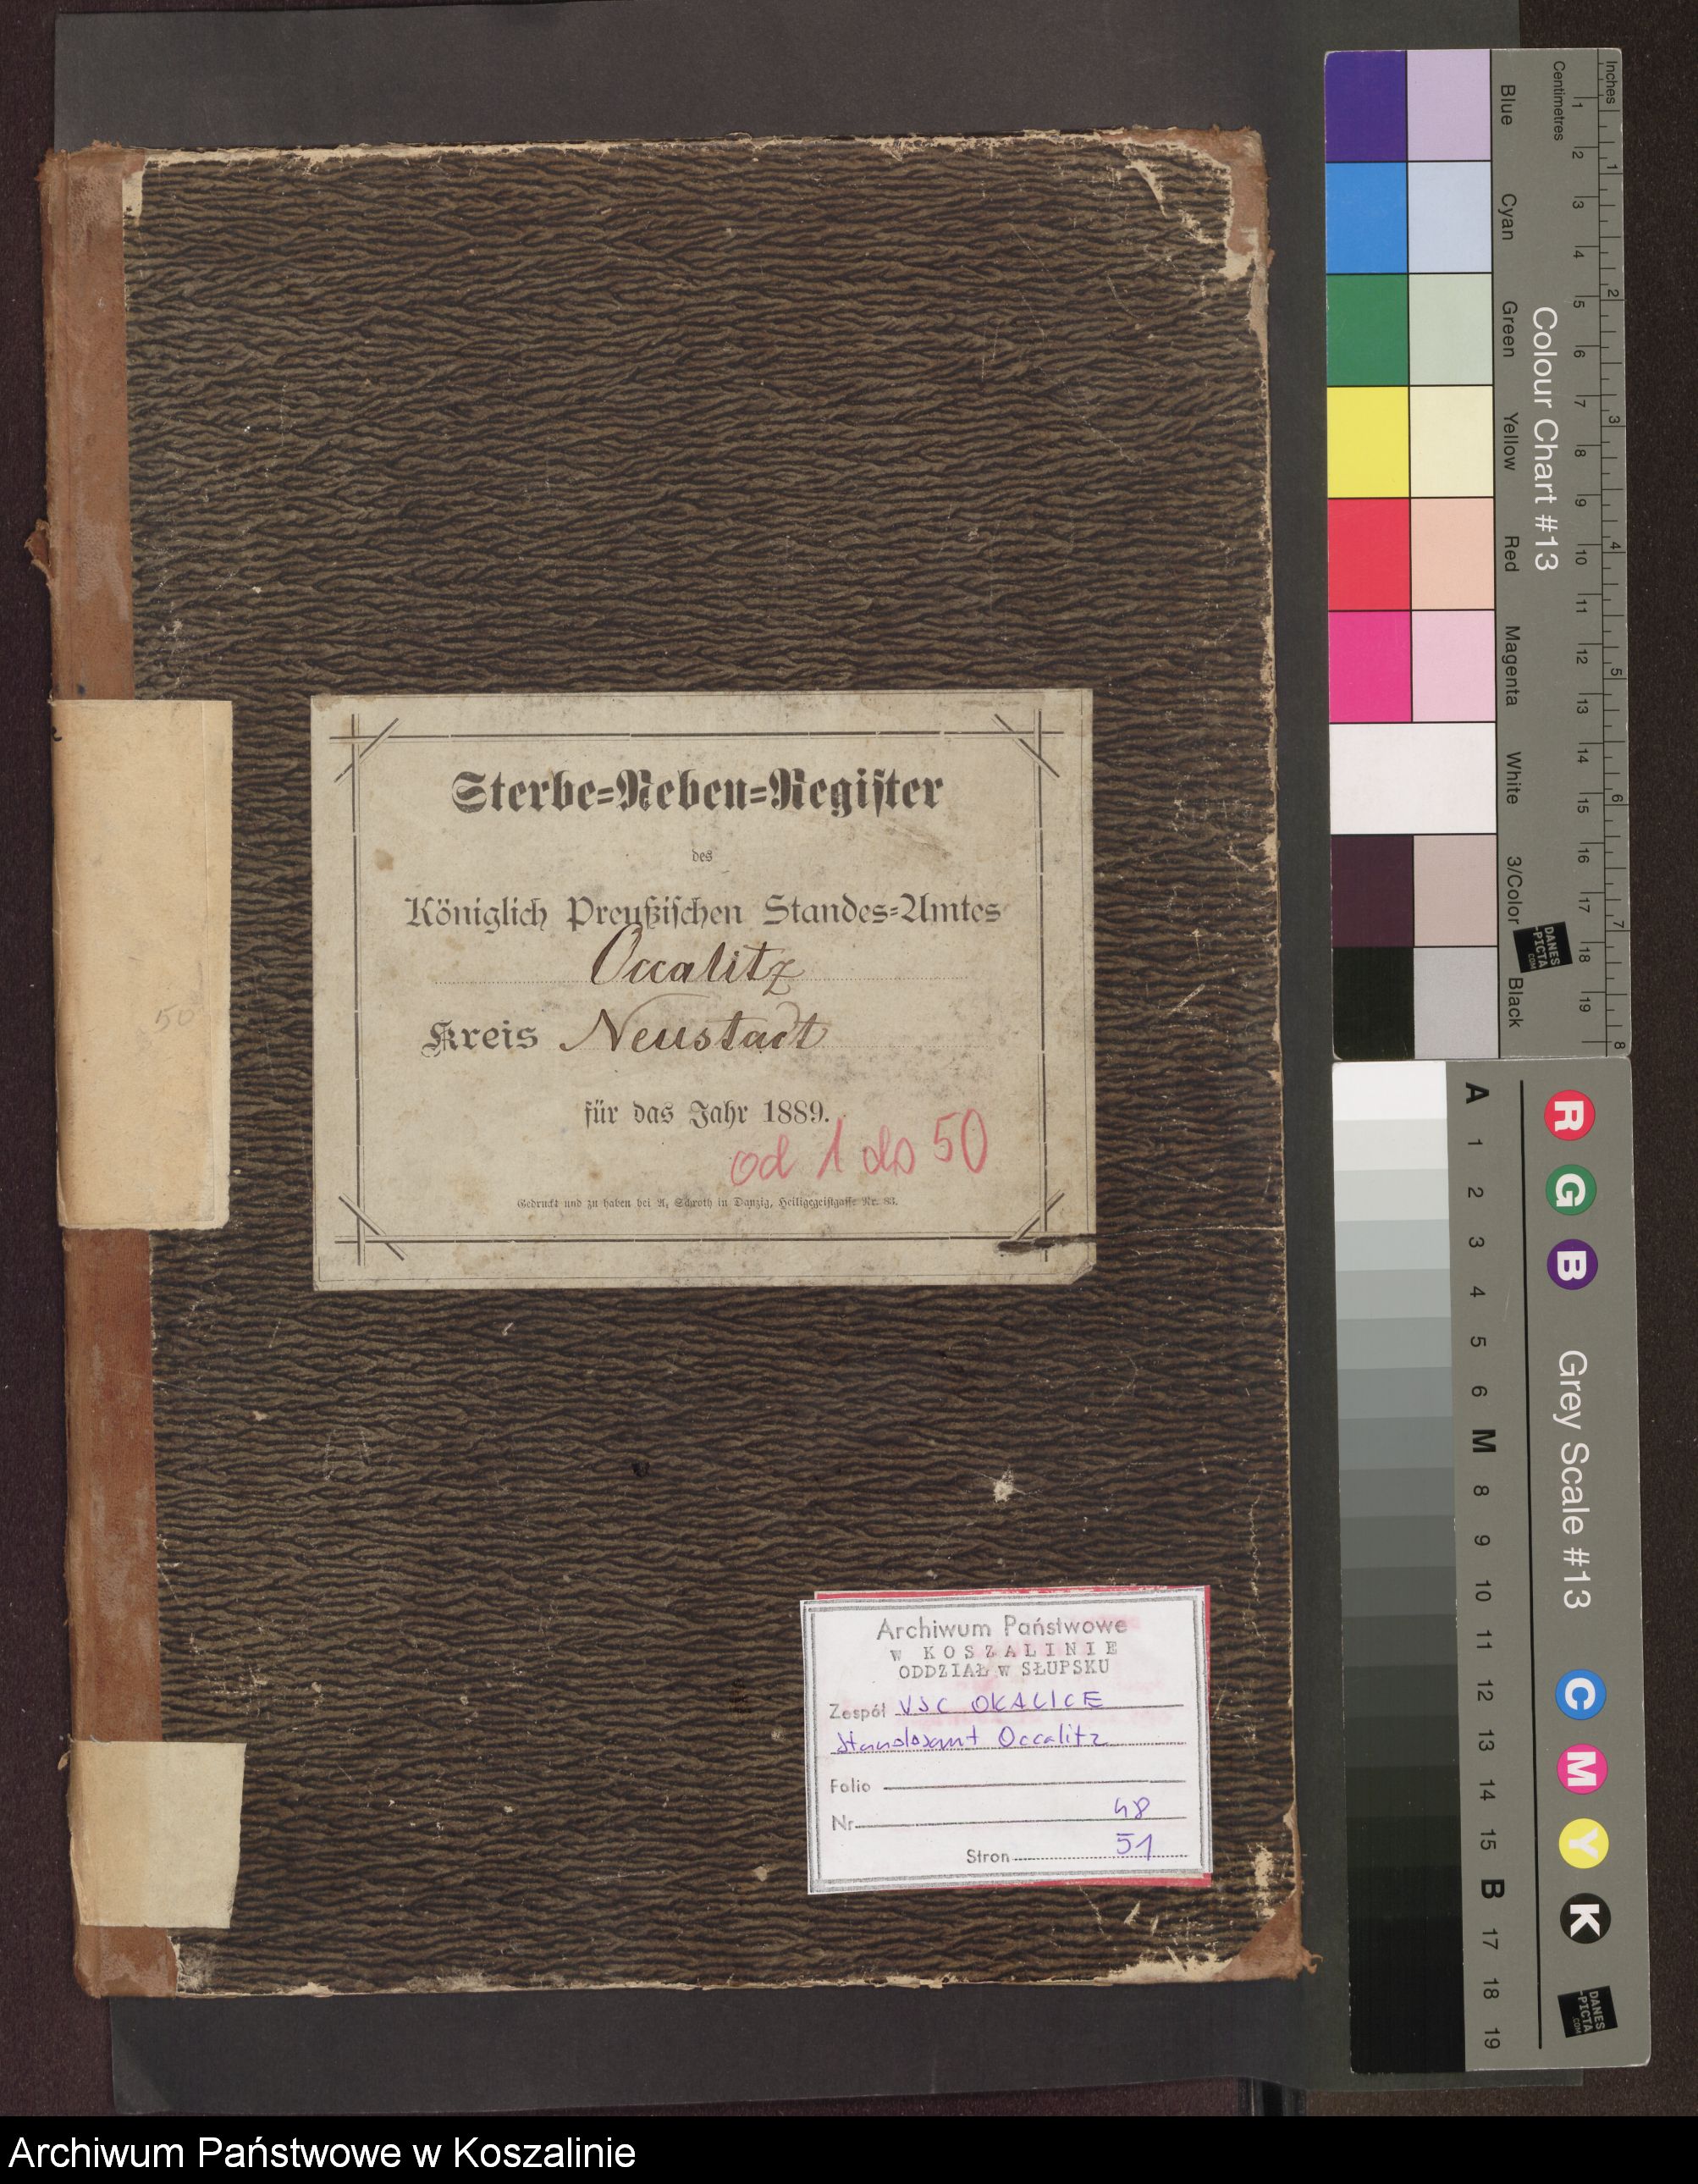 Sterbe=Neben=Register
des
Königlich Preußischen Standes=Amtes
Occalitz
Kreis Neustadt
für das Jahr 1889.
od 1 do 50
Gedruckt und zu haben bei A. Schroth in Danzig, Heiligegeistgasse Nr. 83.
50
Archiwum Państwowe
W KOSZALINIE
ODDZIAŁ W SŁUPSKU
Zespół USC OKALICE
Standesamt Occalitz
Folio
Nr 48
Stron 51
Inches
Centimetres
1 2 3 4 5 6 7 8
1 2 3 4 5 6 7 8 9 10 11 12 13 14 15 16 17 18 19
Colour Chart #13
Blue Cyan Green Yellow Red Magenta White 3/Color Black
DANES
-PICTA
.COM
R G B
Grey Scale #13
C M Y K
A 1 2 3 4 5 6 M 8 9 10 11 12 13 14 15 B 17 18 19
DANES
-PICTA
.COM
Archiwum Państwowe w Koszalinie